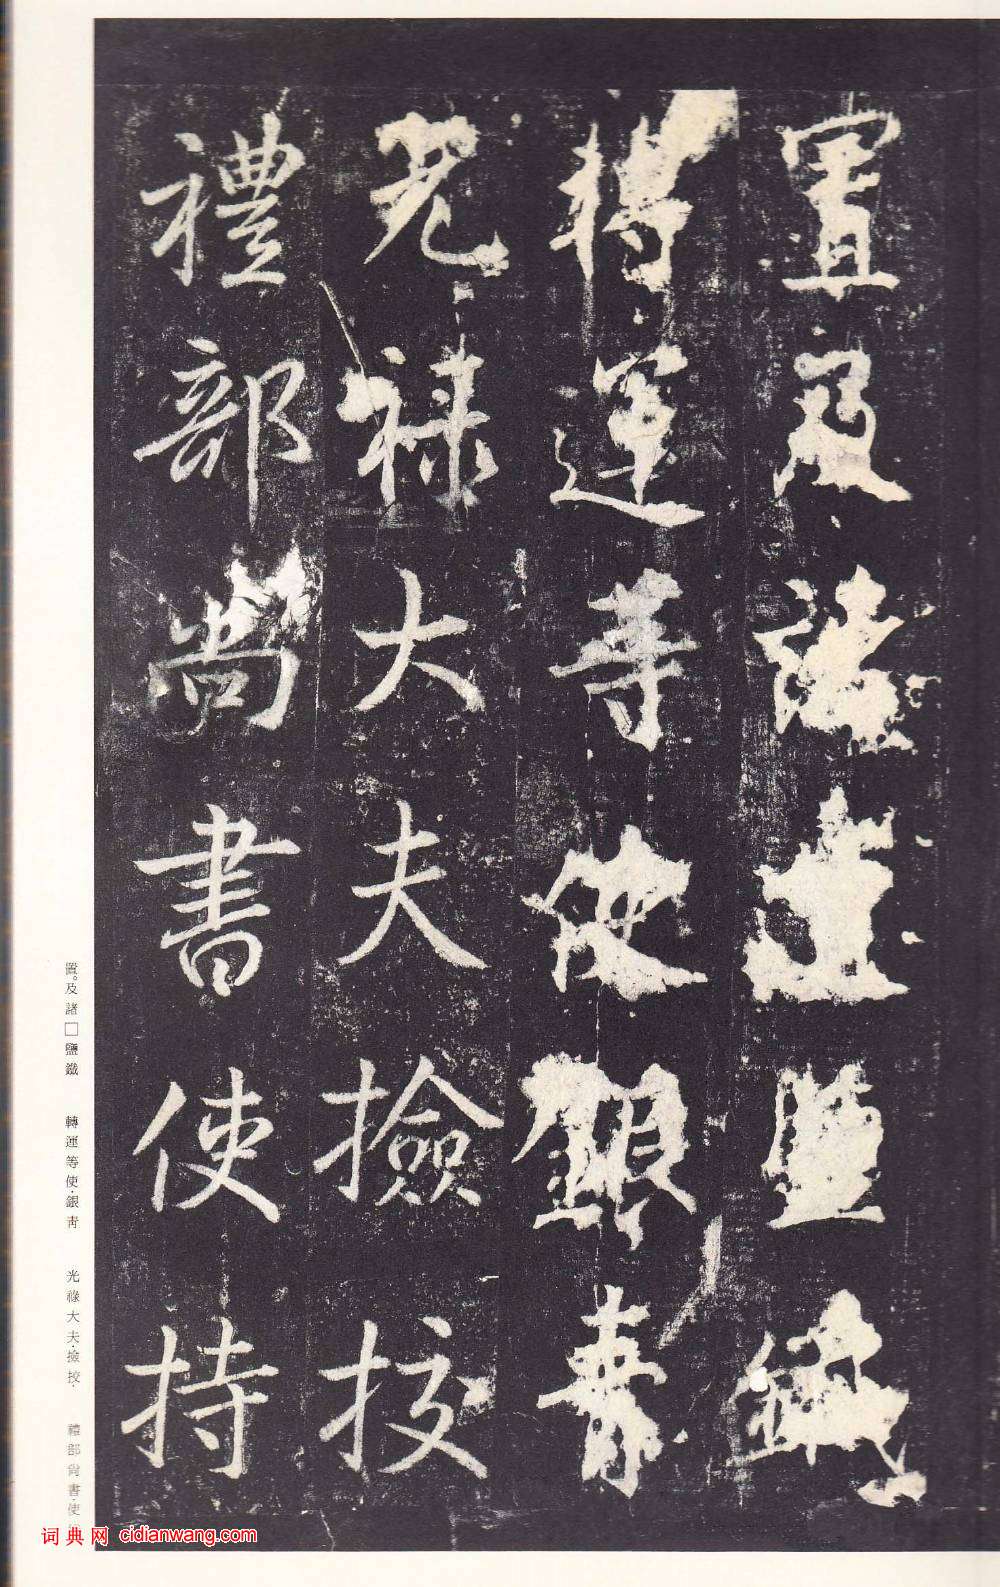 置及諸道鹽鐵
轉運等使銀青
光祿大夫撿挍
禮部尚書使持
置。及諸□鹽鐵 轉運等使·銀青 光祿大夫·撿挍· 禮部尚書·使
词典网 cidianwang.com